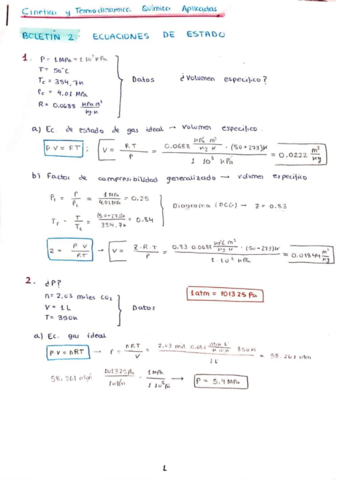 Cinética y Termodinámica Química Aplicadas
BOLETÍN 2: ECUACIONES DE ESTADO
1. P = 1 MPa = 1·10³ kPa
T = 50°C
Tc = 354,7K
Pc = 4.01 MPa
R = 0.0688 kPa m³ / kg K
Datos
¿Volumen específico?
a) Ec. de estado de gas ideal → Volumen específico
P V = RT ; V = RT / P = 0.0688 kPa m³ / kg K · (50+273)K / 1·10³ kPa = 0.0222 m³/kg
b) Factor de compresibilidad generalizado → volumen específico
Pr = P / Pc = 1 MPa / 4.01 MPa = 0.25
Tr = T / Tc = (50+273)K / 354.7K = 0.84
Diagrama (DCG) → Z = 0.83
Z = P V / RT → V = Z·R·T / P = 0.83 · 0.0688 kPa m³ / kg K · (50+273)K / 1·10³ kPa = 0.01844 m³/kg
2. ¿P?
n = 2.03 moles CO₂
V = 1L
T = 350K
Datos
1atm = 101325 Pa
a) Ec. gas ideal
P V = nRT → P = nRT / V = 350K / 1L = 58.261 atm
58.261 atm · 101325 Pa / 1 atm · 1 MPa / 1·10⁶ Pa → P = 5.9 MPa
1